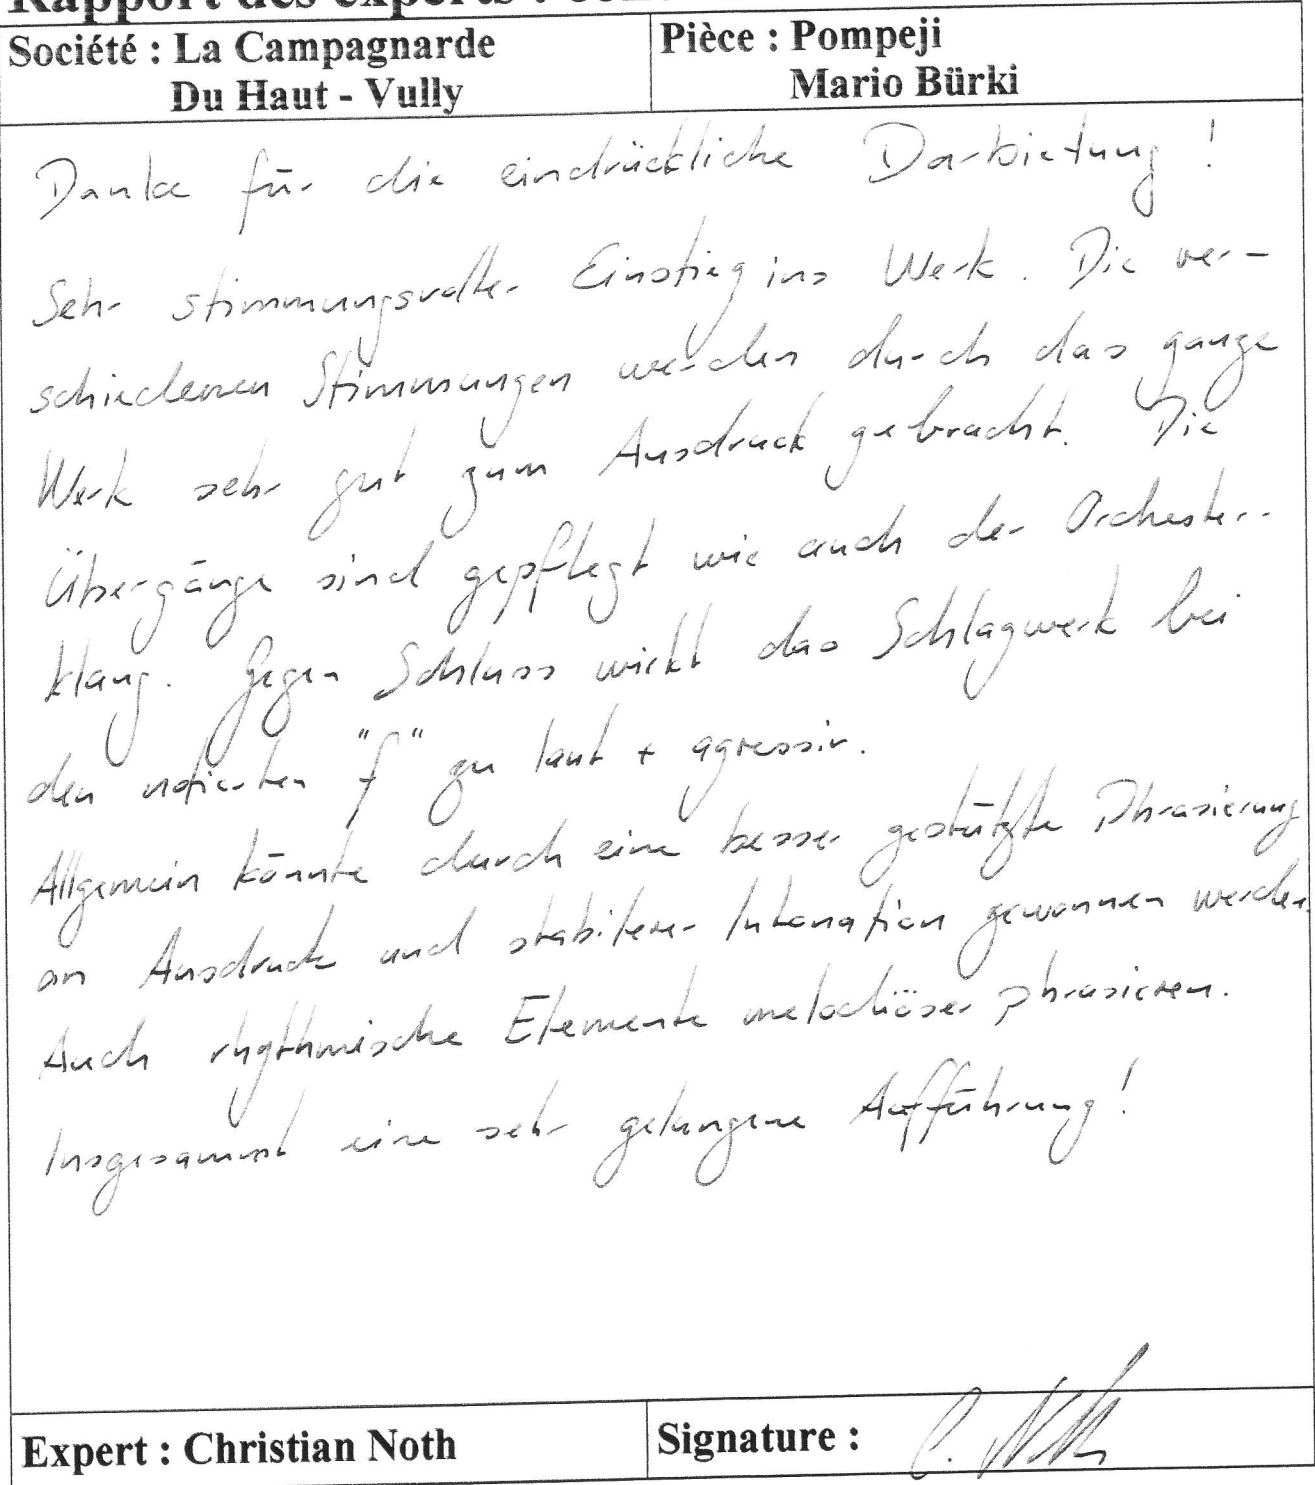 Rapport des experts :
Société : La Campagnarde
Du Haut - Vully
Pièce : Pompeji
Mario Bürki
Danke für die eindrückliche Darbietung !
Sehr stimmungsvoller Einstieg ins Werk. Die ver-
schiedenen Stimmungen werden durch das ganze
Werk sehr gut zum Ausdruck gebracht. Die
Übergänge sind gepflegt wie auch der Orchester-
klang. Gegen Schluss wirkt das Schlagwerk bei
den notierten "f" zu laut + agressiv.
Allgemein könnte durch eine besser gestützte Phrasierung
an Ausdruck und stabilerer Intonation gewonnen werden.
Auch rhythmische Elemente melodiöser phrasieren.
Insgesammt eine sehr gelungene Aufführung!
Expert : Christian Noth
Signature :
C. Noth